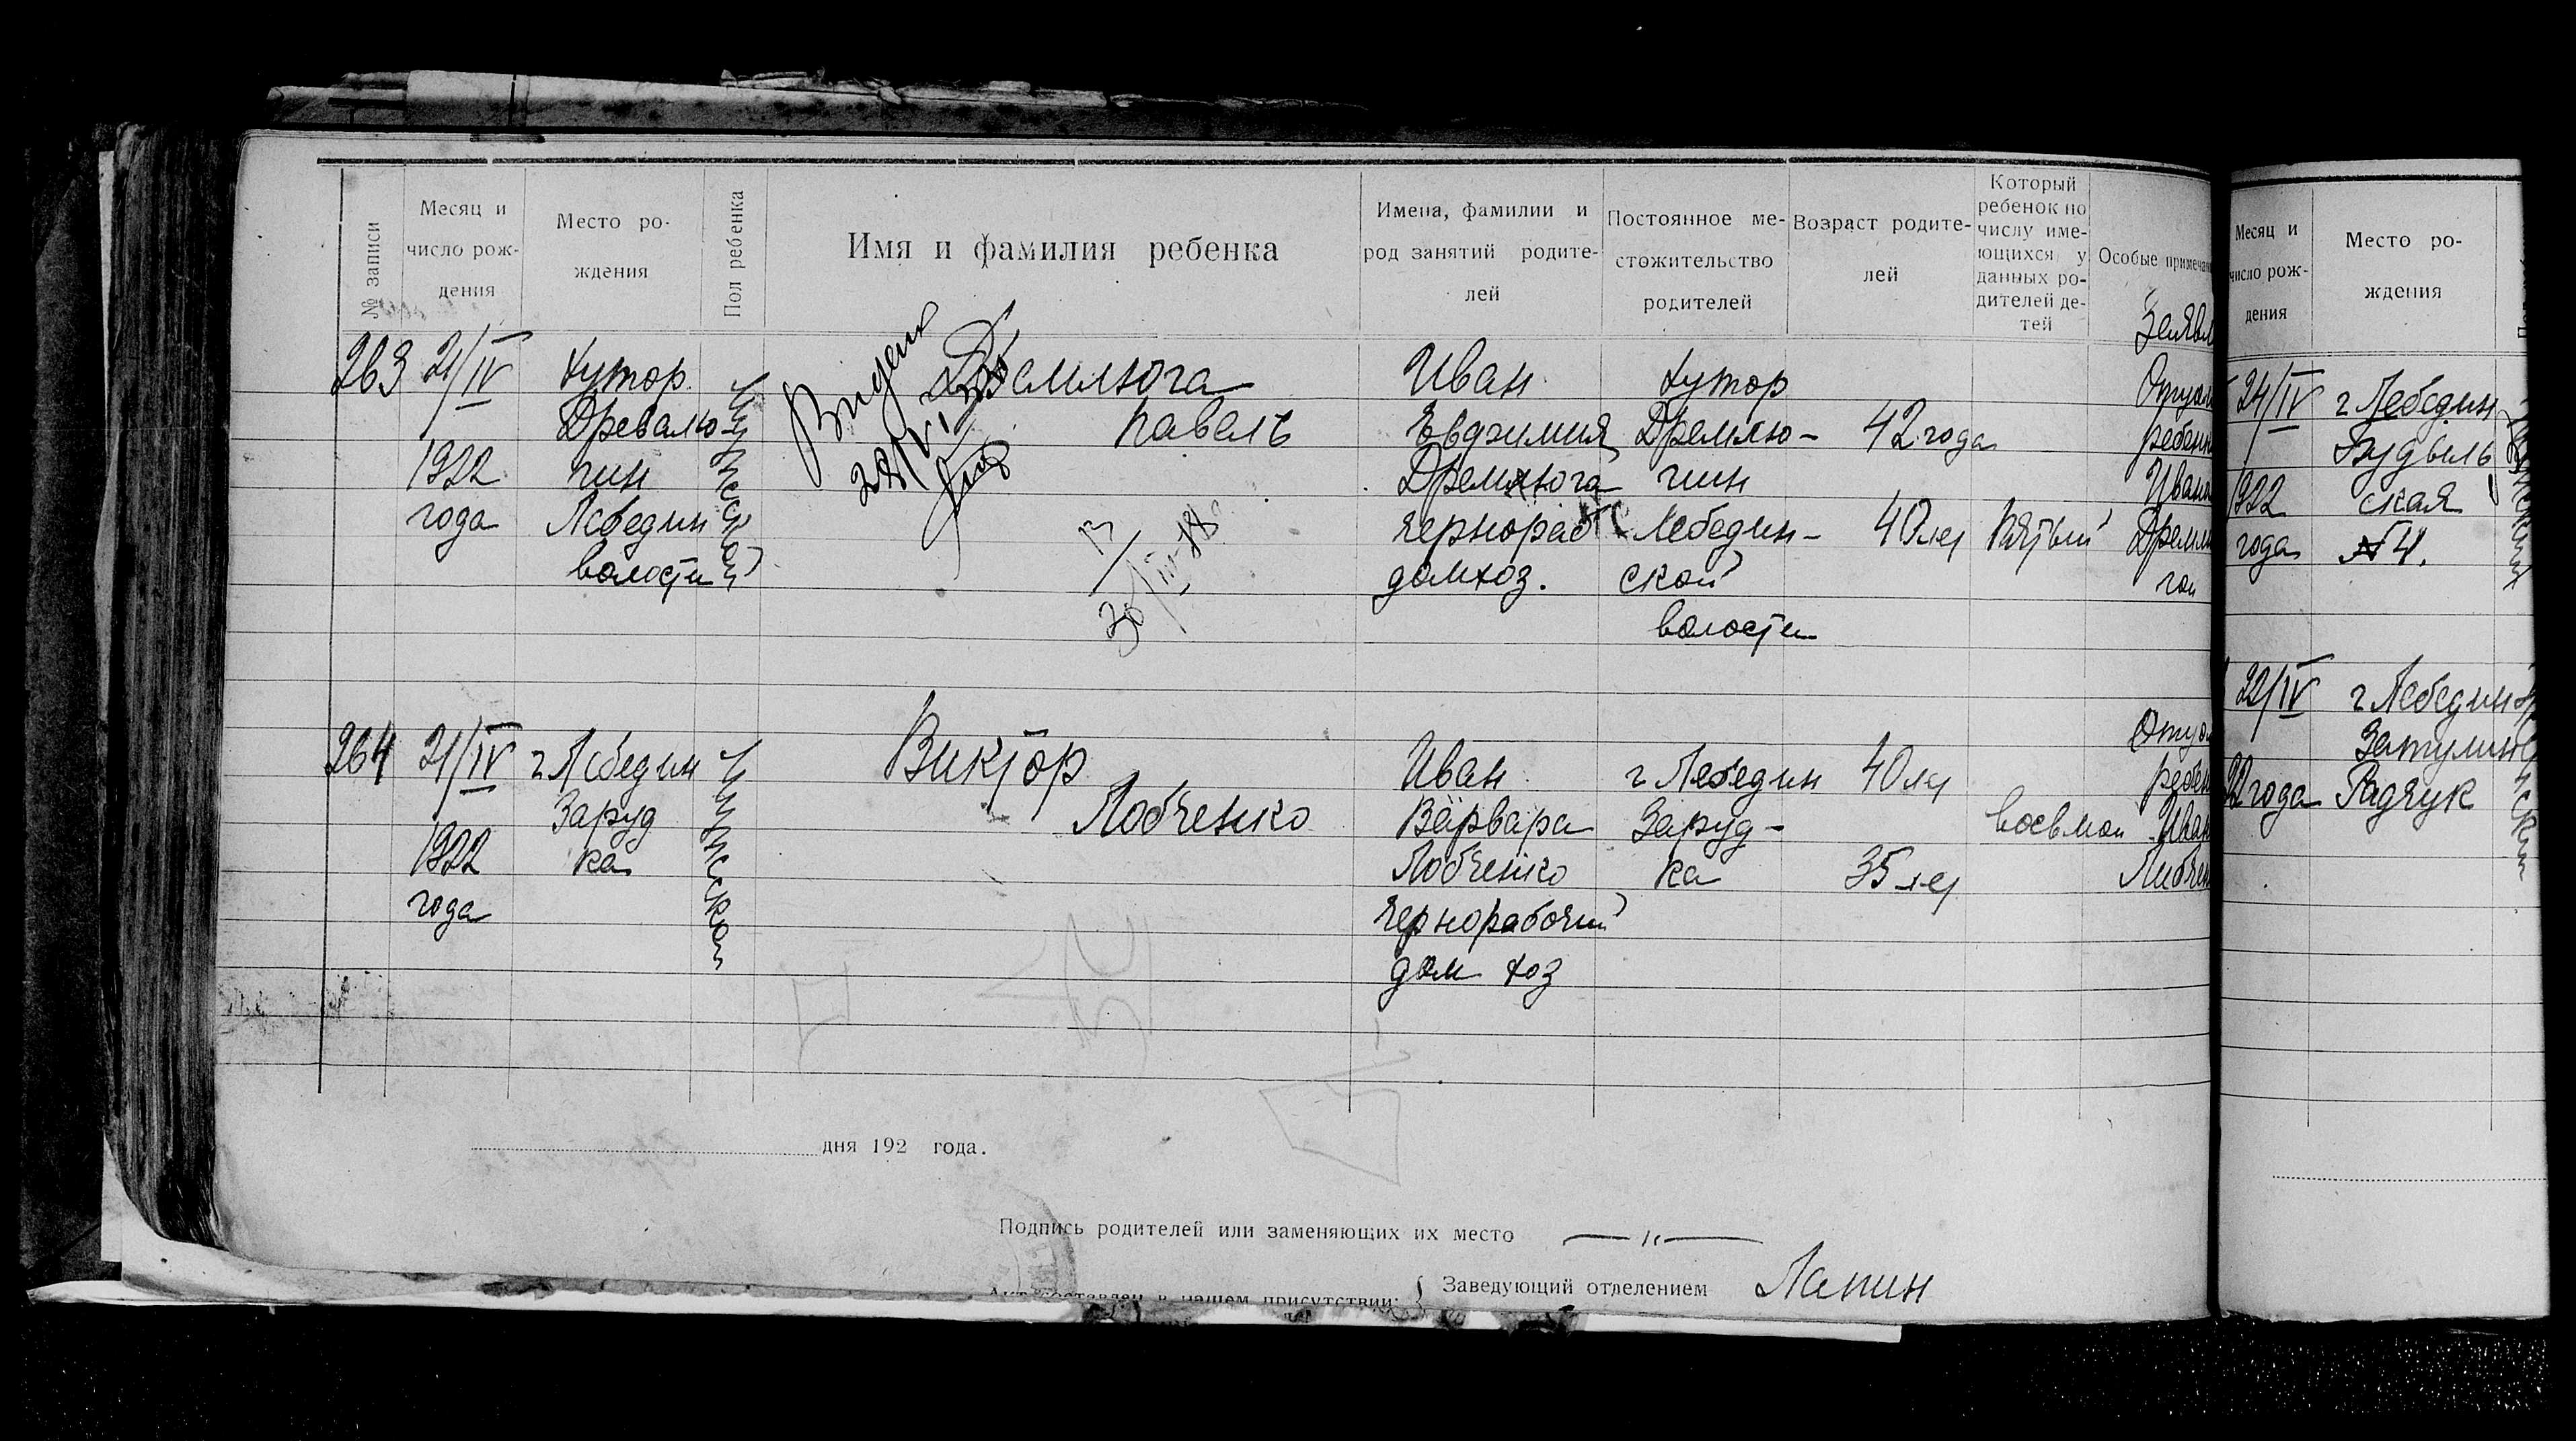 № записи
Месяц и
число рож-
дения
Место ро-
ждения
Пол ребенка
Имя и фамилия ребенка
Имена, фамилии и
род занятий родите-
лей
Постоянное ме-
стожительство
родителей
Возраст родите-
лей
Который
ребенок по
числу име-
ющихся у
данных ро-
дителей де-
тей
Особые примечан
263
21/IV
1922
года
хутор
Древалю-
гин
Лебедин
волости
мужской
Видели
Дремлюга
Павелъ
30/III-48
Иван
Евдокимия
Дремлюга
чернораб
домхоз.
хутор
Дремлю-
гин
Лебедин-
ской
волости
42 года
40 лет
Пятый
Заявл
Отцом
ребенк
Ивано
Дремлю
гой
264
21/IV
1922
года
г Лебедин
Заруд
ка
мужской
Виктор
Лобченко
Иван
Варвара
Лобченко
чернорабочий
дом хоз
г Лебедин
Заруд-
ка
40 лет
35 лет
восьмой
Отцом
ребен
Иван
Лобчен
дня 192 года.
Подпись родителей или заменяющих их место
Акт составлен в нашем присутствии:
Заведующий отделением Лапин
Месяц и
число рож-
дения
Место ро-
ждения
24/IV
1922
года
г Лебедин
Будыль
ская
№ 4.
22/IV
22 года
г Лебедин
Радчук